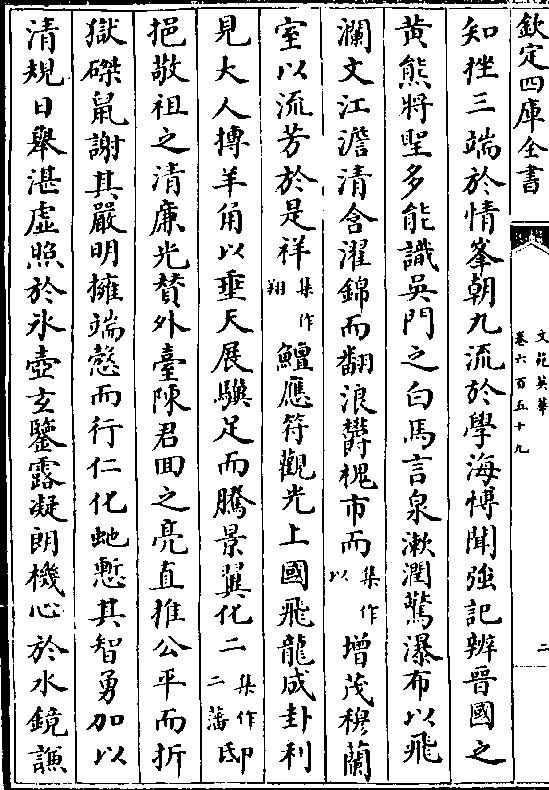 欽定四庫全書
文苑英華
卷六百五十九
二
知挫三端於情峯朝九流於學海愽聞強記辨晉國之
黄熊將聖多能識吳門之白馬言泉漱潤驚瀑布以飛
瀾文江澹清含濯錦而翻浪欝槐市而集作以增茂穆蘭
室以流芳於是祥集作翔鱣應符觀光上國飛龍成卦利
見大人摶羊角以垂天展驥足而騰景翼化二集作二藩邸
挹敬祖之清廉光賛外臺陳君回之亮直推公平而折
獄磔鼠謝其嚴明擁端慤而行仁化虵慙其智勇加以
清規日舉湛虛照於氷壺玄鑒露凝朗機心於水鏡謙